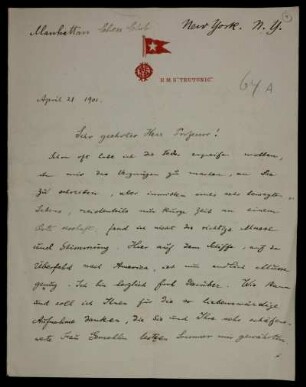 Manhattan Chess Club New York. N. Y.
R.M.S "TEUTONIC"
64 A
April 28 1901.
Sehr geehrter Herr Professor!
Schon oft habe ich die Feder ergreifen wollen,
um mir das Vergnügen zu machen, an Sie
zu schreiben, aber inmitten eines sehr bewegten
Lebens, meistenteils nur kurze Zeit an einem
Orte, fand ich nicht die richtige Musse
und Stimmung. Hier auf dem Schiffe, auf der
Überfahrt nach Amerika, ist mir endlich Musse
genug. Ich bin herzlich froh darüber. Wie kann
und soll ich Ihnen für die so liebenswürdige
Aufnahme danken, die Sie und Ihre sehr
Frau Gemahlin letzten Sommer mir gewährten